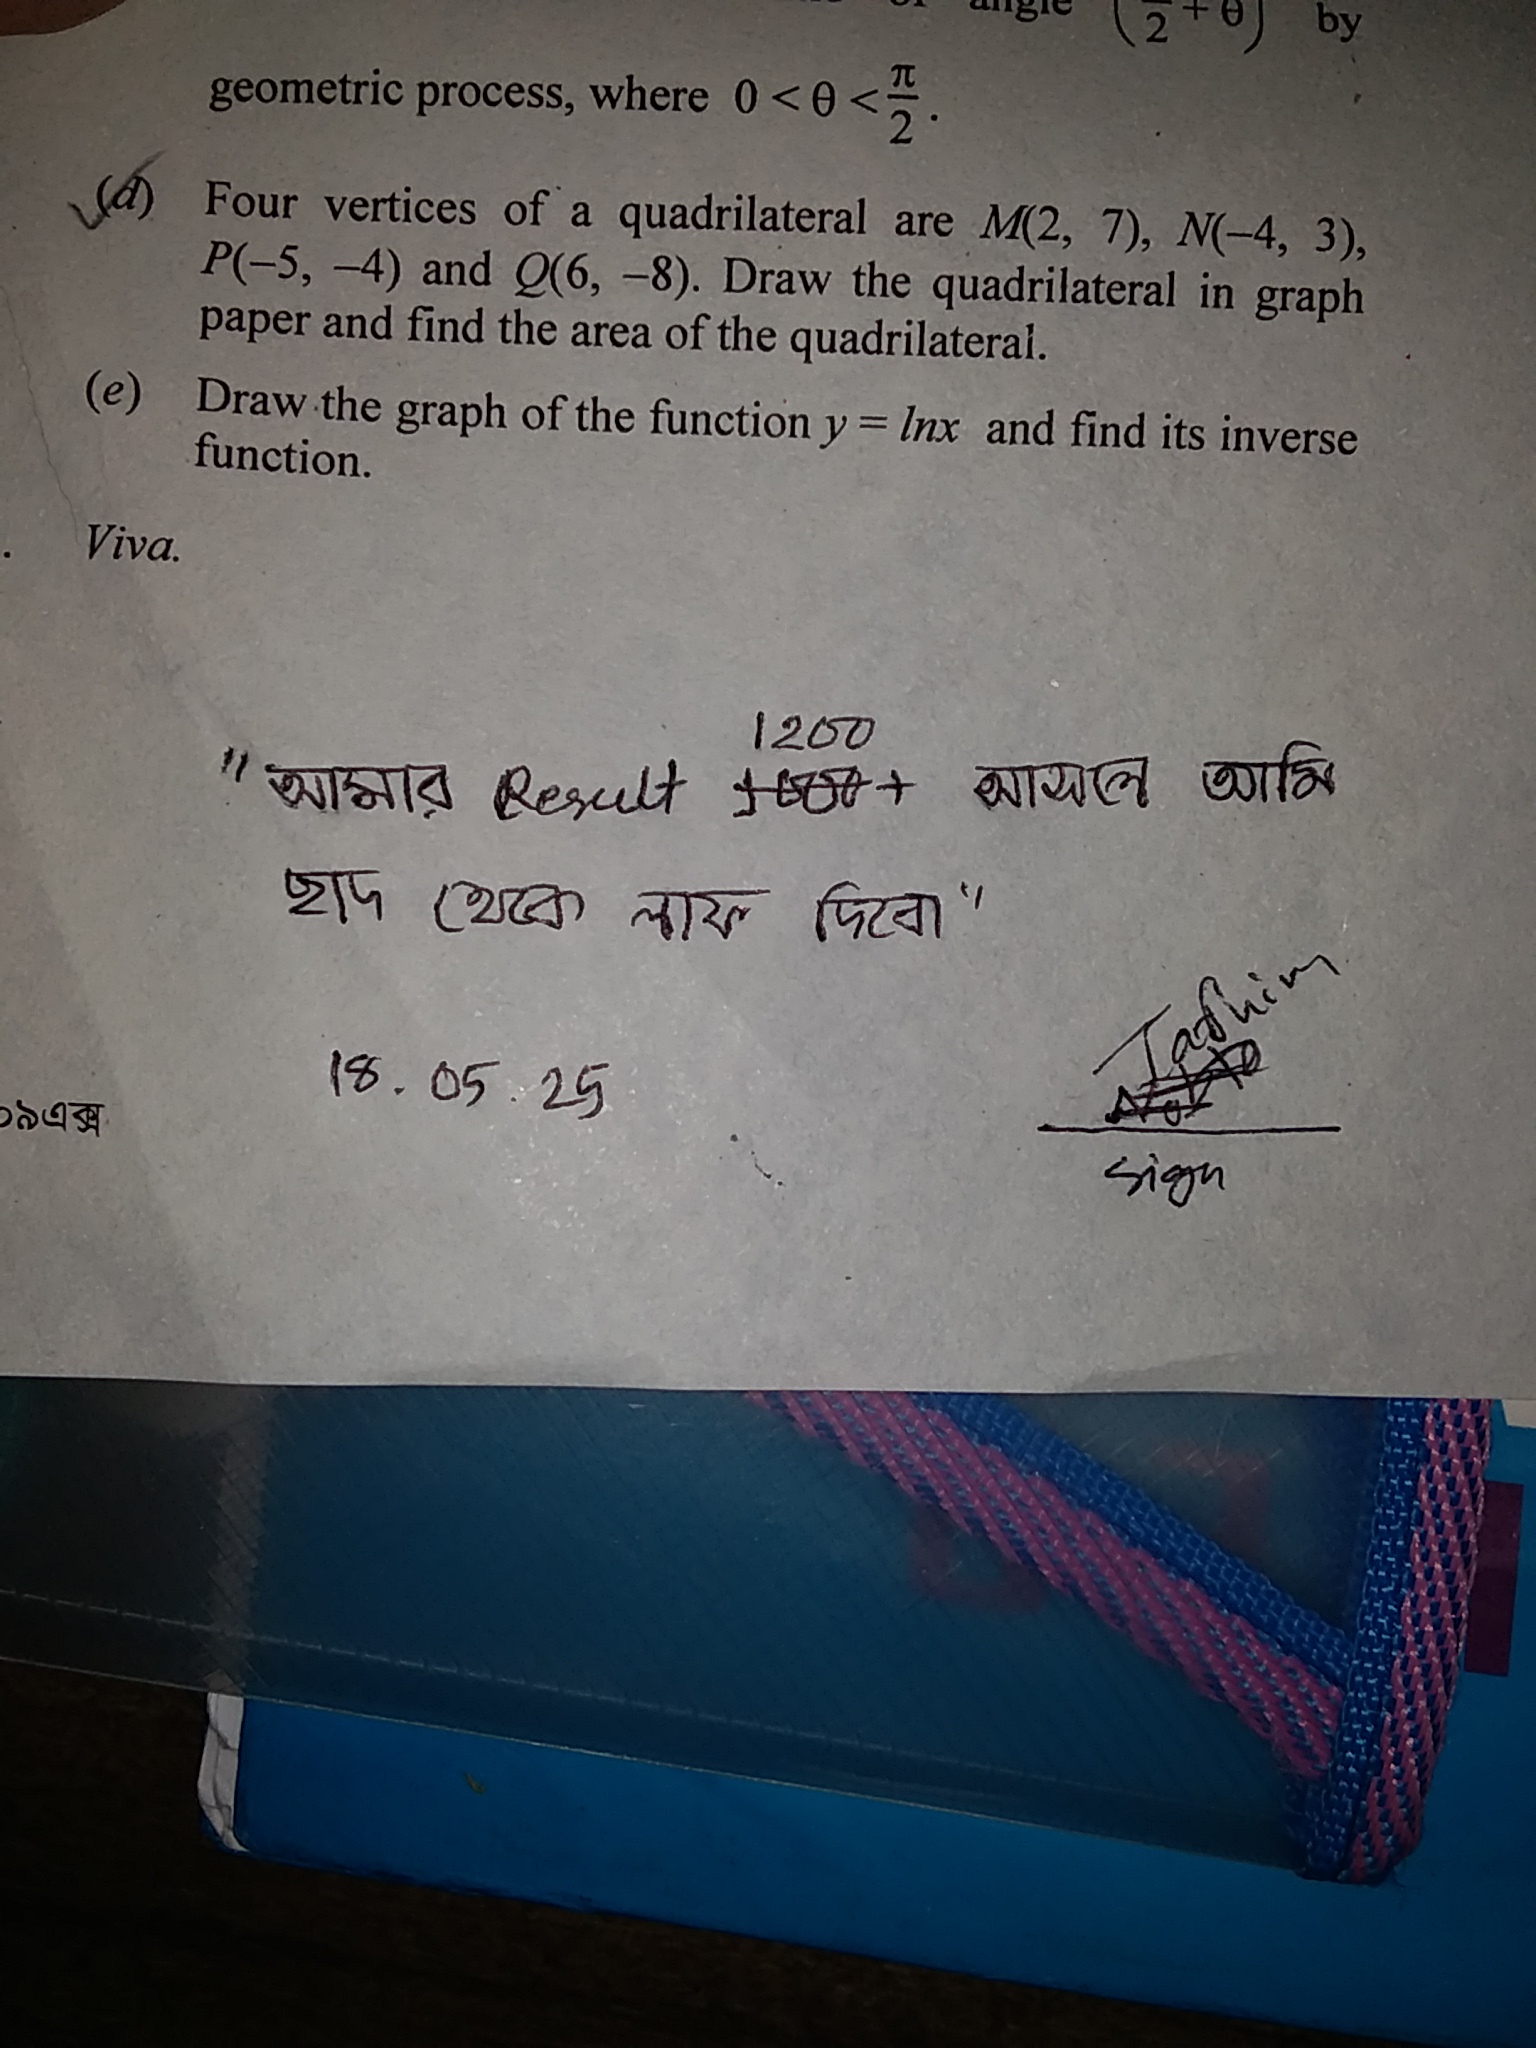 angle (π/2 + θ) by
geometric process, where 0 < θ < π/2.
(d) Four vertices of a quadrilateral are M(2, 7), N(–4, 3),
P(–5, –4) and Q(6, –8). Draw the quadrilateral in graph
paper and find the area of the quadrilateral.
(e) Draw the graph of the function y = lnx and find its inverse
function.
Viva.
1200
"আমার Result + আসলে আমি
ছাদ থেকে লাফ দিবো"
18.05.25
Tashim
০৯এক্স
sign